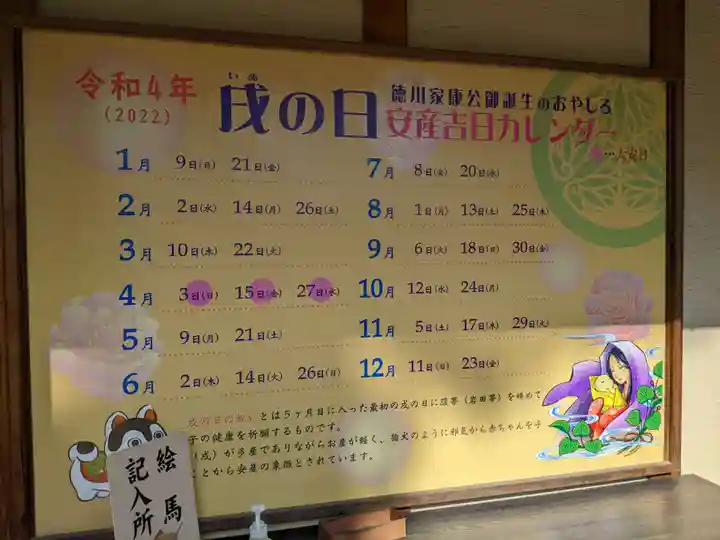 令和4年
(2022)
いぬ
戌の日
徳川家康公御誕生のおやしろ
安産吉日カレンダー
…大安日
1月 9日(日) 21日(金)
2月 2日(水) 14日(月) 26日(土)
3月 10日(木) 22日(火)
4月 3日(日) 15日(金) 27日(水)
5月 9日(月) 21日(土)
6月 2日(木) 14日(火) 26日(日)
7月 8日(金) 20日(水)
8月 1日(月) 13日(土) 25日(木)
9月 6日(火) 18日(日) 30日(金)
10月 12日(水) 24日(月)
11月 5日(土) 17日(木) 29日(火)
12月 11日(日) 23日(金)
戌の日の祝いとは5ヶ月目に入った最初の戌の日に腹帯(岩田帯)を締めて
子の健康を祈願するものです。
(戌)が多産でありながらお産が軽く、狛犬のように邪気から赤ちゃんを守
ことから安産の象徴とされています。
絵馬
記入所